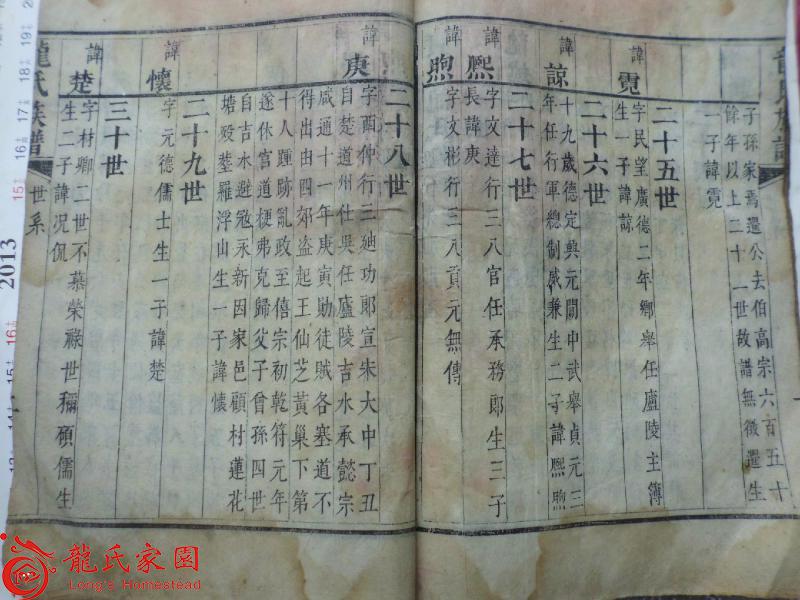 子孫家焉暹公去伯高宗六百五十
餘年以上二十一世故譜無徵暹生
一子諱霓
二十五世
諱霓
字民望廣德二年鄉舉任廬陵主簿
生一子諱諒
二十六世
諱諒
十九歲德定興元閫中武舉貞元三
年任行軍總制威兼生二子諱熙煦
二十七世
諱熙
字文達行三八官任承務郎生三子
長諱庚
諱煦
字文彬行三八貢元無傳
二十八世
諱庚
字酉仲行三廸功郎宣朱大中丁丑
自楚道州仕吳任廬陵吉水承懿宗
咸通十一年庚寅勛徒賊各塞道不
得出由四郊盗起王仙芝黄巢下第
十人踵跡亂政至僖宗初乾符元年
遂休官道梗弗克歸父子曾孫四世
自吉水避冦永新因家邑顧村蓮花
塘殁塟羅浮山生一子諱懷
二十九世
諱懷
字元德儒士生一子諱楚
三十世
諱楚
字村卿二世不慕榮祿世稱碩儒生
生二子諱況侃
龍氏族譜
世系
2013
龍氏家園
Long's Homestead